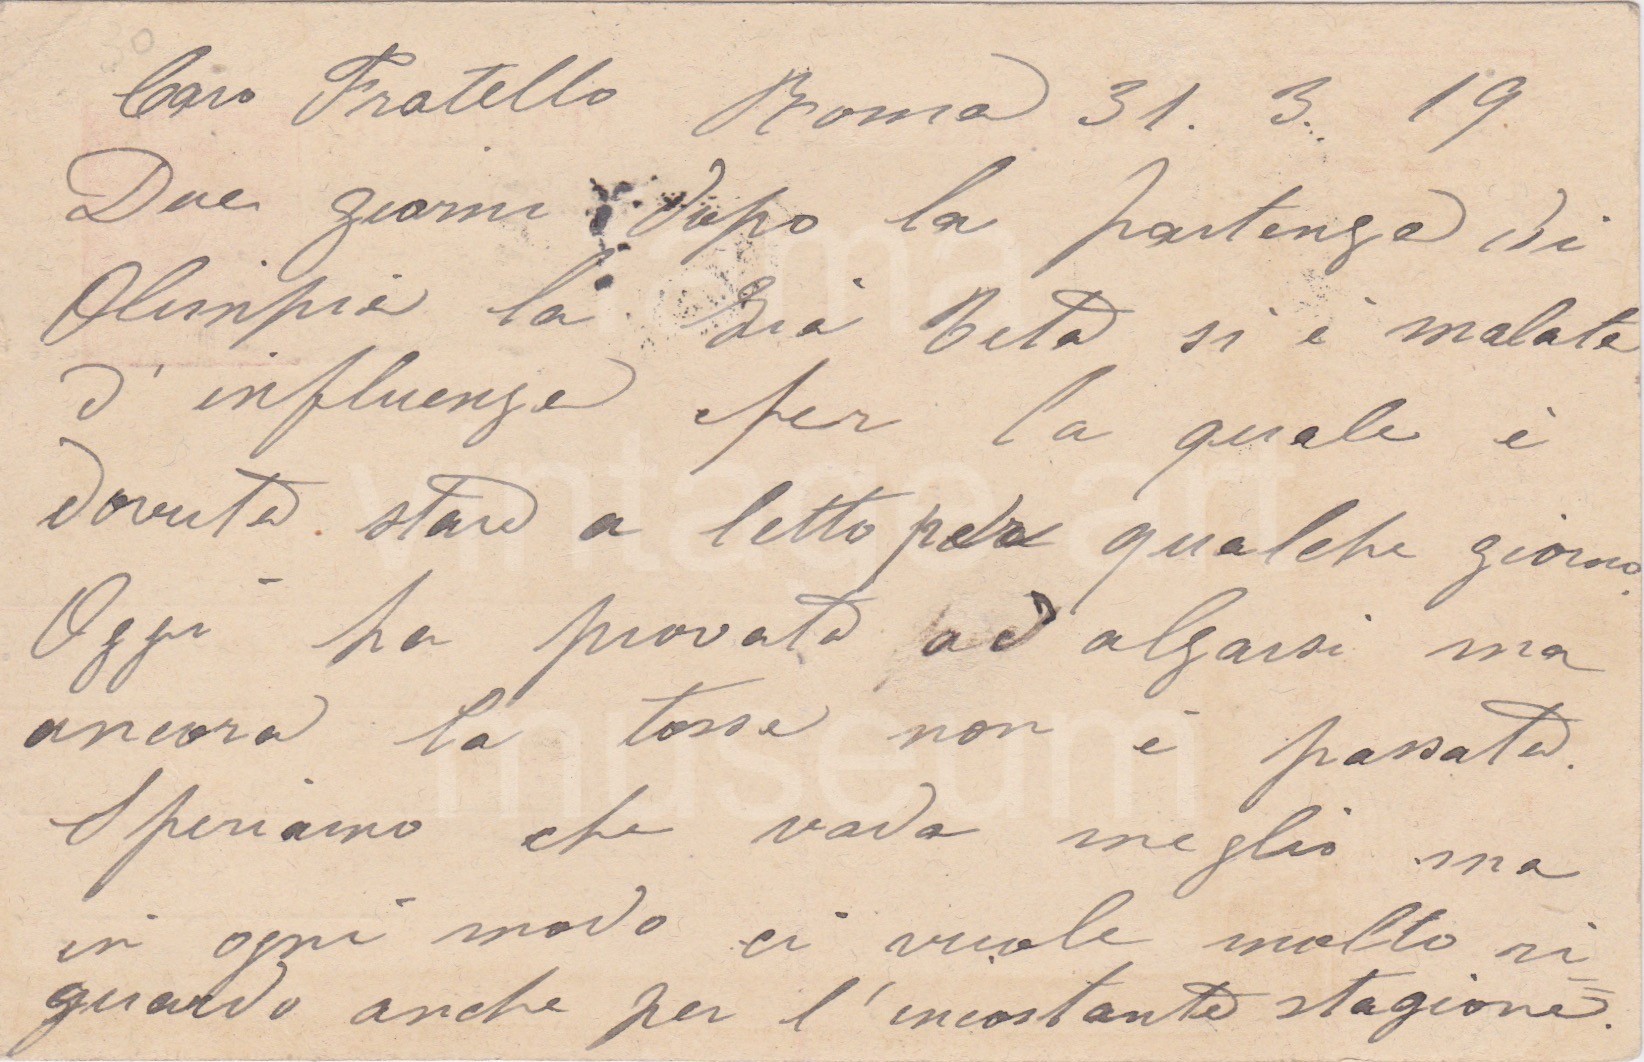 Caro Fratello Roma 31. 3. 19
Due giorni dopo la partenza di
Olimpia la Zia Beta si è malata
d'influenza per la quale è
dovuta stare a letto per qualche giorno.
Oggi ha provata ad alzarsi ma
ancora la tosse non è passata.
Speriamo che vada meglio ma
in ogni modo ci vuole molto ri=
guardo anche per l'incostante stagione.
ama
vintage art
museum